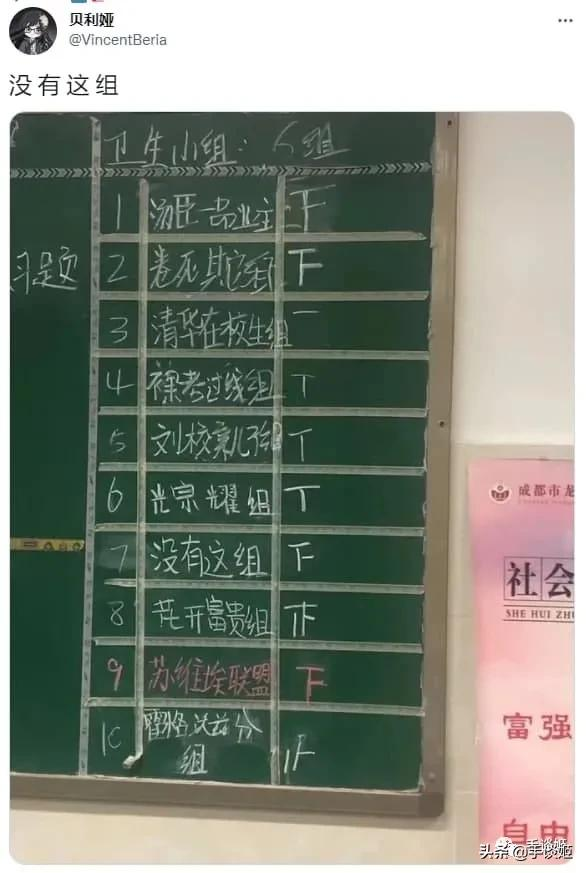 贝利娅
@VincentBeria
没有这组
卫生小组: 6组
习题
1 汤臣一品业主 下
2 卷死其它组 下
3 清华在校生组 一
4 裸考过线组 丅
5 刘校亲儿子组 丅
6 光宗耀组 丅
7 没有这组 下
8 花开富贵组
9 苏维埃联盟 下
10 霍格沃兹分组
成都市龙
社会
SHE HUI ZHU
富强
自由
头条@手谈姬
手谈姬